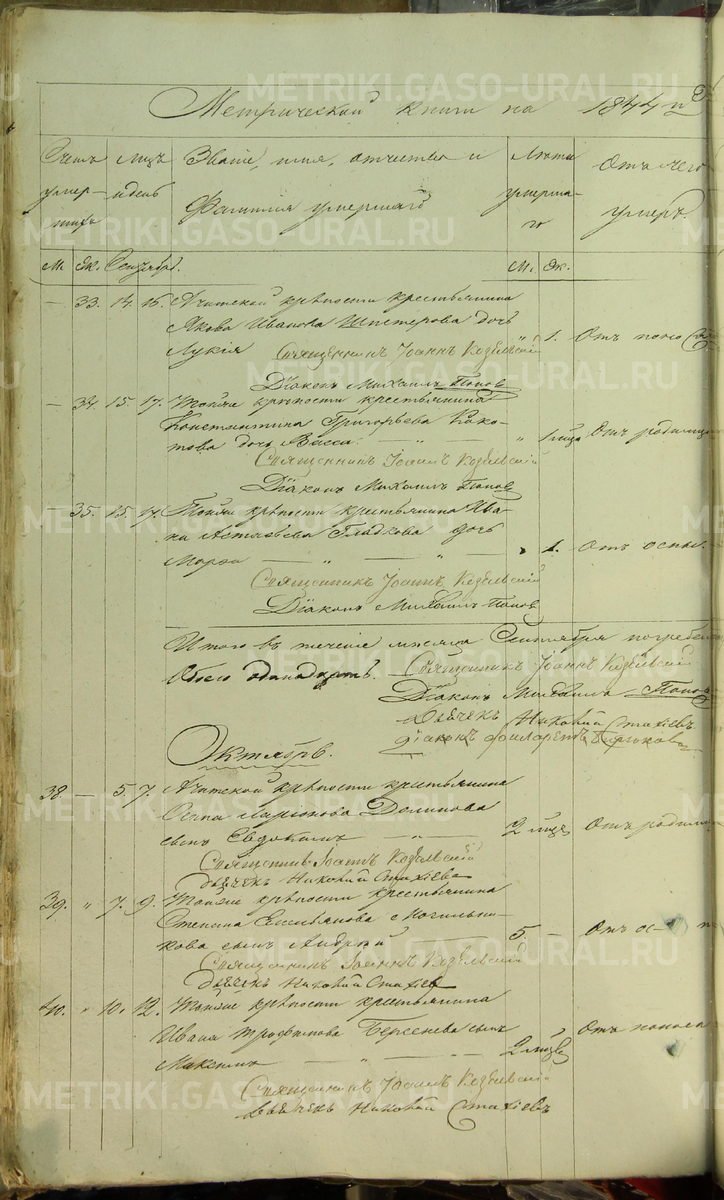 METRIKI.GASO-URAL.RU
Метрической книги на 1844 й
Счетъ умер-
лицъ и день
Званіе, имя, отчество и
Фамилія умершаго
Лѣта умерша-
го
Отъ чего
умеръ.
М. Ж. Сентябрь. М. Ж.
— 33. 14. 16. Ачитской крѣпости крестьянина
Якова Иванова дочь
Лукія " 1. Отъ поноса
Священникъ Іоаннъ Козельскій
Діаконъ Михаилъ Поповъ
— 34. 15. 17. Тойже крѣпости крестьянина
Константина Григорьева Коко-
това дочь Васса " 1 Отъ родимца
Священникъ Іоаннъ Козельскій
Діаконъ Михаилъ Поповъ
— 35. 15. 17. Тойже крѣпости крестьянина Ива-
на Гладкова дочь
— " — " — 1. Отъ оспы.
Священникъ Іоаннъ Козельскій
Діаконъ Михаилъ Поповъ
Итого въ теченіе мѣсяца Сентября погребено
Обоего одинадцать.
Священникъ Іоаннъ Козельскій
Діаконъ Михаилъ Поповъ
Дьячекъ Никовій Стахіевъ
Октябрь.
38. — 5. 7. Ачитской крѣпости крестьянина
Осипа Ларіонова
сынъ Евдокимъ — " — 2 Отъ родимца
Священникъ Іоаннъ Козельскій
Дьячекъ Никовій Стахіевъ
39. " 7. 9. Тойже крѣпости крестьянина
Степана Могильни-
кова сынъ Андрей — 5. — Отъ ос-
Священникъ Іоаннъ Козельскій
Дьячекъ Никовій Стахіевъ
40. " 10. 12. Тойже крѣпости крестьянина
Ивана Трофимова Берсенева сынъ
Максимъ — " — 2 Отъ поноса
Священникъ Іоаннъ Козельскій
Дьячекъ Никовій Стахіевъ